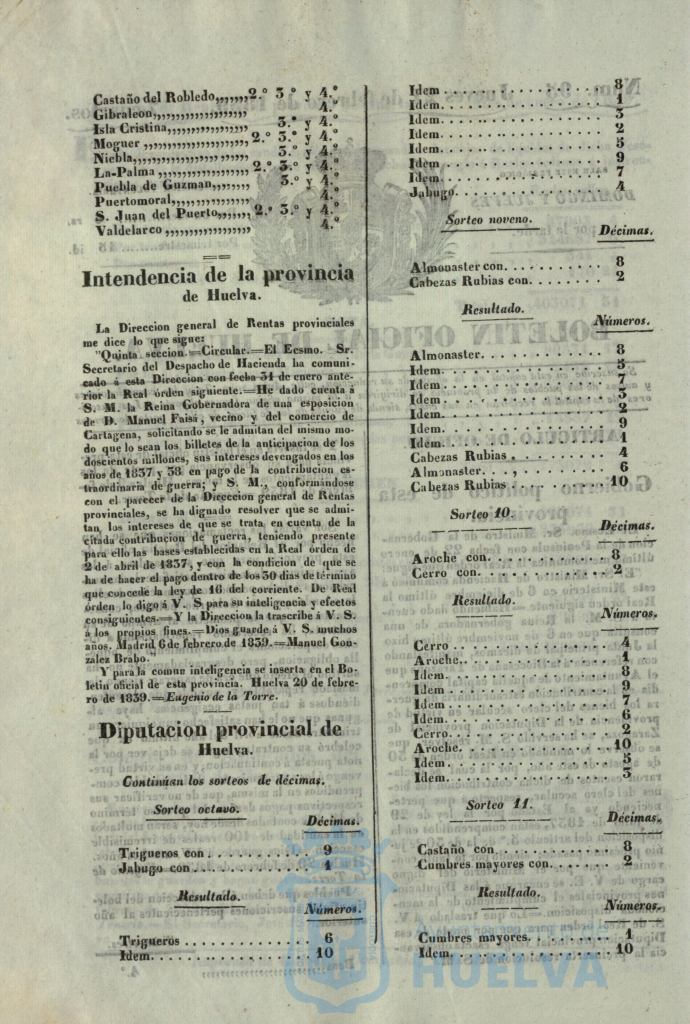 Castaño del Robledo,,,,,,,2.° 3.° y 4.°
Gibraleon,,,,,,,,,,,,,,,,,,,, 4.°
Isla Cristina,,,,,,,,,,,,,,,,, 3.° y 4.°
Moguer ,,,,,,,,,,,,,,,,,,,,2.° 3.° y 4.°
Niebla,,,,,,,,,,,,,,,,,,,,,, 3.° y 4.°
La-Palma ,,,,,,,,,,,,,,,,,2.° 3.° y 4.°
Puebla de Guzman,,,,,,,, 3.° y 4.°
Puertomoral,,,,,,,,,,,,,,,,, 4.°
S. Juan del Puerto,,,,,,,2.° 3.° y 4.°
Valdelarco,,,,,,,,,,,,,,,,,,, 4.°
Intendencia de la provincia
de Huelva.
La Direccion general de Rentas provinciales
me dice lo que sigue:
"Quinta seccion.=Circular.=El Ecsmo. Sr.
Secretario del Despacho de Hacienda ha comuni-
cado á esta Direccion con fecha 31 de enero ante-
rior la Real órden siguiente.=He dado cuenta á
S. M. la Reina Gobernadora de una esposicion
de D. Manuel Faisá, vecino y del comercio de
Cartagena, solicitando se le admitan del mismo mo-
do que lo sean los billetes de la anticipacion de los
doscientos millones, sus intereses devengados en los
años de 1837 y 38 en pago de la contribucion es-
traordinaria de guerra; y S. M., conformándose
con el parecer de la Direccion general de Rentas
provinciales, se ha dignado resolver que se admi-
tan los intereses de que se trata en cuenta de la
citada contribucion de guerra, teniendo presente
para ello las bases establecidas en la Real órden de
2 de abril de 1837, y con la condicion de que se
ha de hacer el pago dentro de los 30 dias de término
que concede la ley de 16 del corriente. De Real
órden lo digo á V. S para su inteligencia y efectos
consiguientes.=Y la Direccion la trascribe á V. S.
á los propios fines.=Dios guarde á V. S. muchos
años. Madrid 6 de febrero de 1839.=Manuel Gon-
zalez Brabo."
Y para la comun inteligencia se inserta en el Bo-
letin oficial de esta provincia. Huelva 20 de febre-
ro de 1839.=Eugenio de la Torre.
Diputacion provincial de
Huelva.
Continúan los sorteos de décimas.
Sorteo octavo.
Décimas.
Trigueros con . . . . . . . . . . . 9
Jabugo con . . . . . . . . . . . . . 1
Resultado.
Números.
Trigueros . . . . . . . . . . . . . . 6
Idem. . . . . . . . . . . . . . . . . 10
Idem . . . . . . . . . . . . . . . . 8
Idem. . . . . . . . . . . . . . . . . 1
Idem. . . . . . . . . . . . . . . . . 3
Idem. . . . . . . . . . . . . . . . . 2
Idem. . . . . . . . . . . . . . . . . 5
Idem . . . . . . . . . . . . . . . . 9
Idem. . . . . . . . . . . . . . . . . 7
Jabugo. . . . . . . . . . . . . . . . 4
Sorteo noveno.
Décimas.
Almonaster con. . . . . . . . . . . 8
Cabezas Rubias con. . . . . . . . . 2
Resultado.
Números.
Almonaster. . . . . . . . . . . . . . 8
Idem. . . . . . . . . . . . . . . . . 5
Idem . . . . . . . . . . . . . . . . 7
Idem. . . . . . . . . . . . . . . . . 3
Idem. . . . . . . . . . . . . . . . . 2
Idem. . . . . . . . . . . . . . . . . 9
Idem. . . . . . . . . . . . . . . . . 1
Cabezas Rubias . . . . . . . . . . . 4
Almonaster. . . , . . . . . . . . . . 6
Cabezas Rubias . . . . . . . . . . . 10
Sorteo 10.
Décimas.
Aroche con. . . . . . . . . . . . . . 8
Cerro con. . . . . . . . . . . . . . . 2
Resultado.
Números.
Cerro . . . . . . . . . . . . . . . . 4
Aroche. . . . . . . . . . . . . . . . 1
Idem. . . . . . . . . . . . . . . . . 8
Idem . . . . . . . . . . . . . . . . 9
Idem. . . . . . . . . . . . . . . . . 7
Idem. . . . . . . . . . . . . . . . . 6
Cerro. . . . . . . . . . . . . . . . . 2
Aroche. . . . . . . . . . . . . . . . 10
Idem. . . . . . . . . . . . . . . . . 5
Idem. . . . . . . . . . . . . . . . . 3
Sorteo 11.
Décimas.
Castaño con. . . . . . . . . . . . . 8
Cumbres mayores con. . . . . . . . 2
Resultado.
Números.
Cumbres mayores. . . . . . . . . . 1
Idem. . . . . . . . . . . . . . . . . 10
HUELVA